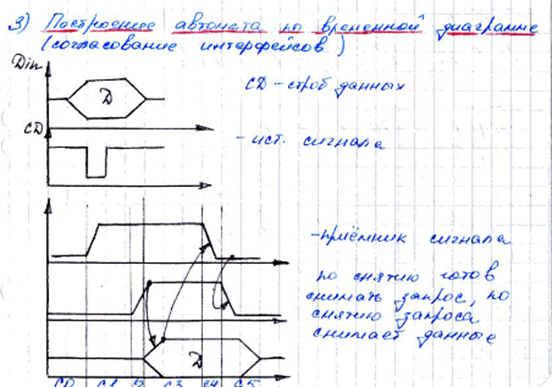 3) Построение автомата по временной диаграмме
(согласование интерфейсов)
Din
D
CD - строб данных
CD
- ист. сигнала
- приёмник сигнала
по снятию готов
снимать запрос, по
снятию запроса
снимает данные
D
C0 C1 C2 C3 C4 C5